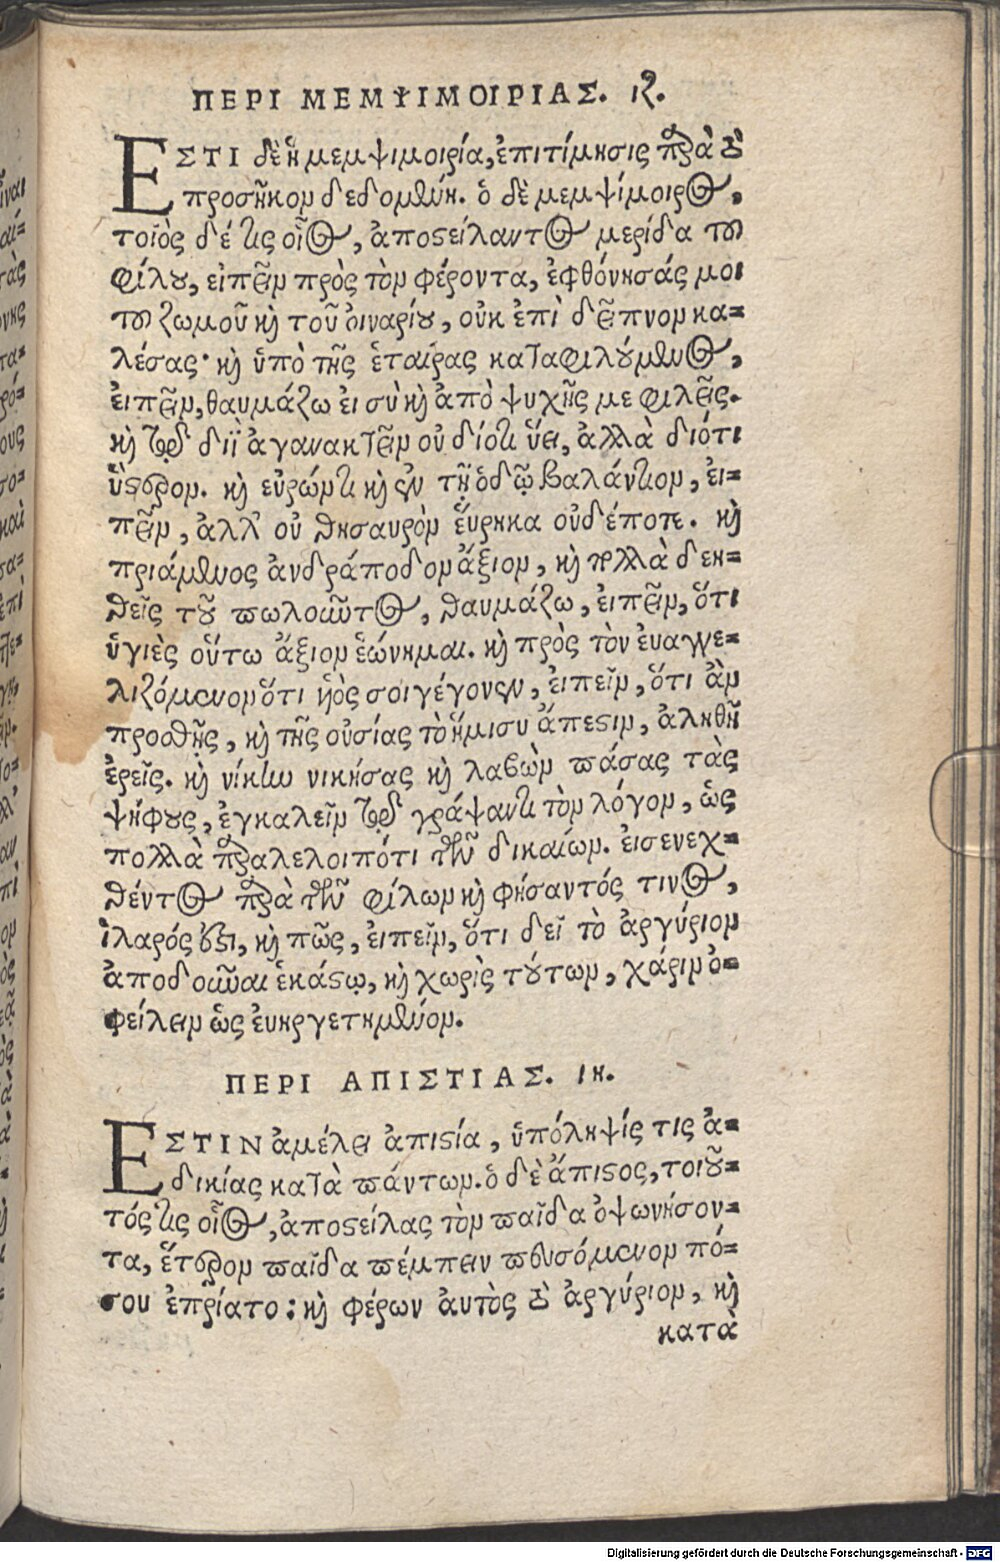 ΠΕΡΙ ΜΕΜΨΙΜΟΙΡΙΑΣ. ιζ.
ΕΣΤΙ δὲ ἡ μεμψιμοιρία, ἐπιτίμησις παρὰ τὸ
προσῆκον δεδομένη. ὁ δὲ μεμψίμοιρος,
τοιὸς δέ τις οἷος, ἀποστείλαντος μερίδα τοῦ
φίλου, εἰπεῖν πρὸς τὸν φέροντα, ἐφθόνησάς μοι
τοῦ ζωμοῦ καὶ τοῦ οἰναρίου, οὐκ ἐπὶ δεῖπνον κα=
λέσας· καὶ ὑπὸ τῆς ἑταίρας καταφιλούμενος,
εἰπεῖν, θαυμάζω εἰ σὺ καὶ ἀπὸ ψυχῆς με φιλεῖς.
καὶ τῷ διῒ ἀγανακτεῖν οὐ διότι ὕει, ἀλλὰ διότι
ὕστερον. καὶ εὑρών τι καὶ ἐν τῇ ὁδῷ βαλάντιον, εἰ=
πεῖν, ἀλλ' οὐ θησαυρὸν εὕρηκα οὐδέποτε. καὶ
πριάμενος ἀνδράποδον ἄξιον, καὶ πολλὰ δεη=
θεὶς τοῦ πωλοῦντος, θαυμάζω, εἰπεῖν, ὅτι
ὑγιὲς οὕτω ἄξιον ἑώνημαι. καὶ πρὸς τὸν εὐαγγε=
λιζόμενον ὅτι ἡὸς σοι γέγονεν, εἰπεῖν, ὅτι ἂν
προσθῇς, καὶ τῆς οὐσίας τὸ ἥμισυ ἄπεστιν, ἀληθῆ
ἐρεῖς. καὶ νίκην νικήσας καὶ λαβὼν πάσας τὰς
ψήφους, ἐγκαλεῖν τῷ γράψαντι τὸν λόγον, ὡς
πολλὰ παραλελοιπότι τῶν δικαίων. εἰσενεχ=
θέντος παρὰ τῶν φίλων καὶ φήσαντός τινος,
ἱλαρός ἔσι, καὶ πῶς, εἰπεῖν, ὅτι δεῖ τὸ ἀργύριον
ἀποδοῦναι ἑκάστῳ, καὶ χωρὶς τούτων, χάριν ὀ=
φείλειν ὡς εὐηργετημένον.
ΠΕΡΙ ΑΠΙΣΤΙΑΣ. ιη.
ΕΣΤΙΝ ἀμέλει ἀπιστία, ὑπόληψίς τις ἀ=
δικίας κατὰ πάντων. ὁ δὲ ἄπιστος, τοιοῦ=
τός τις οἷος, ἀποστείλας τὸν παῖδα ὀψωνήσον=
τα, ἕτερον παῖδα πέμπειν πευσόμενον πό=
σου ἐπρίατο: καὶ φέρων αὐτὸς τὸ ἀργύριον, καὶ
κατὰ
Digitalisierung gefördert durch die Deutsche Forschungsgemeinschaft - DFG